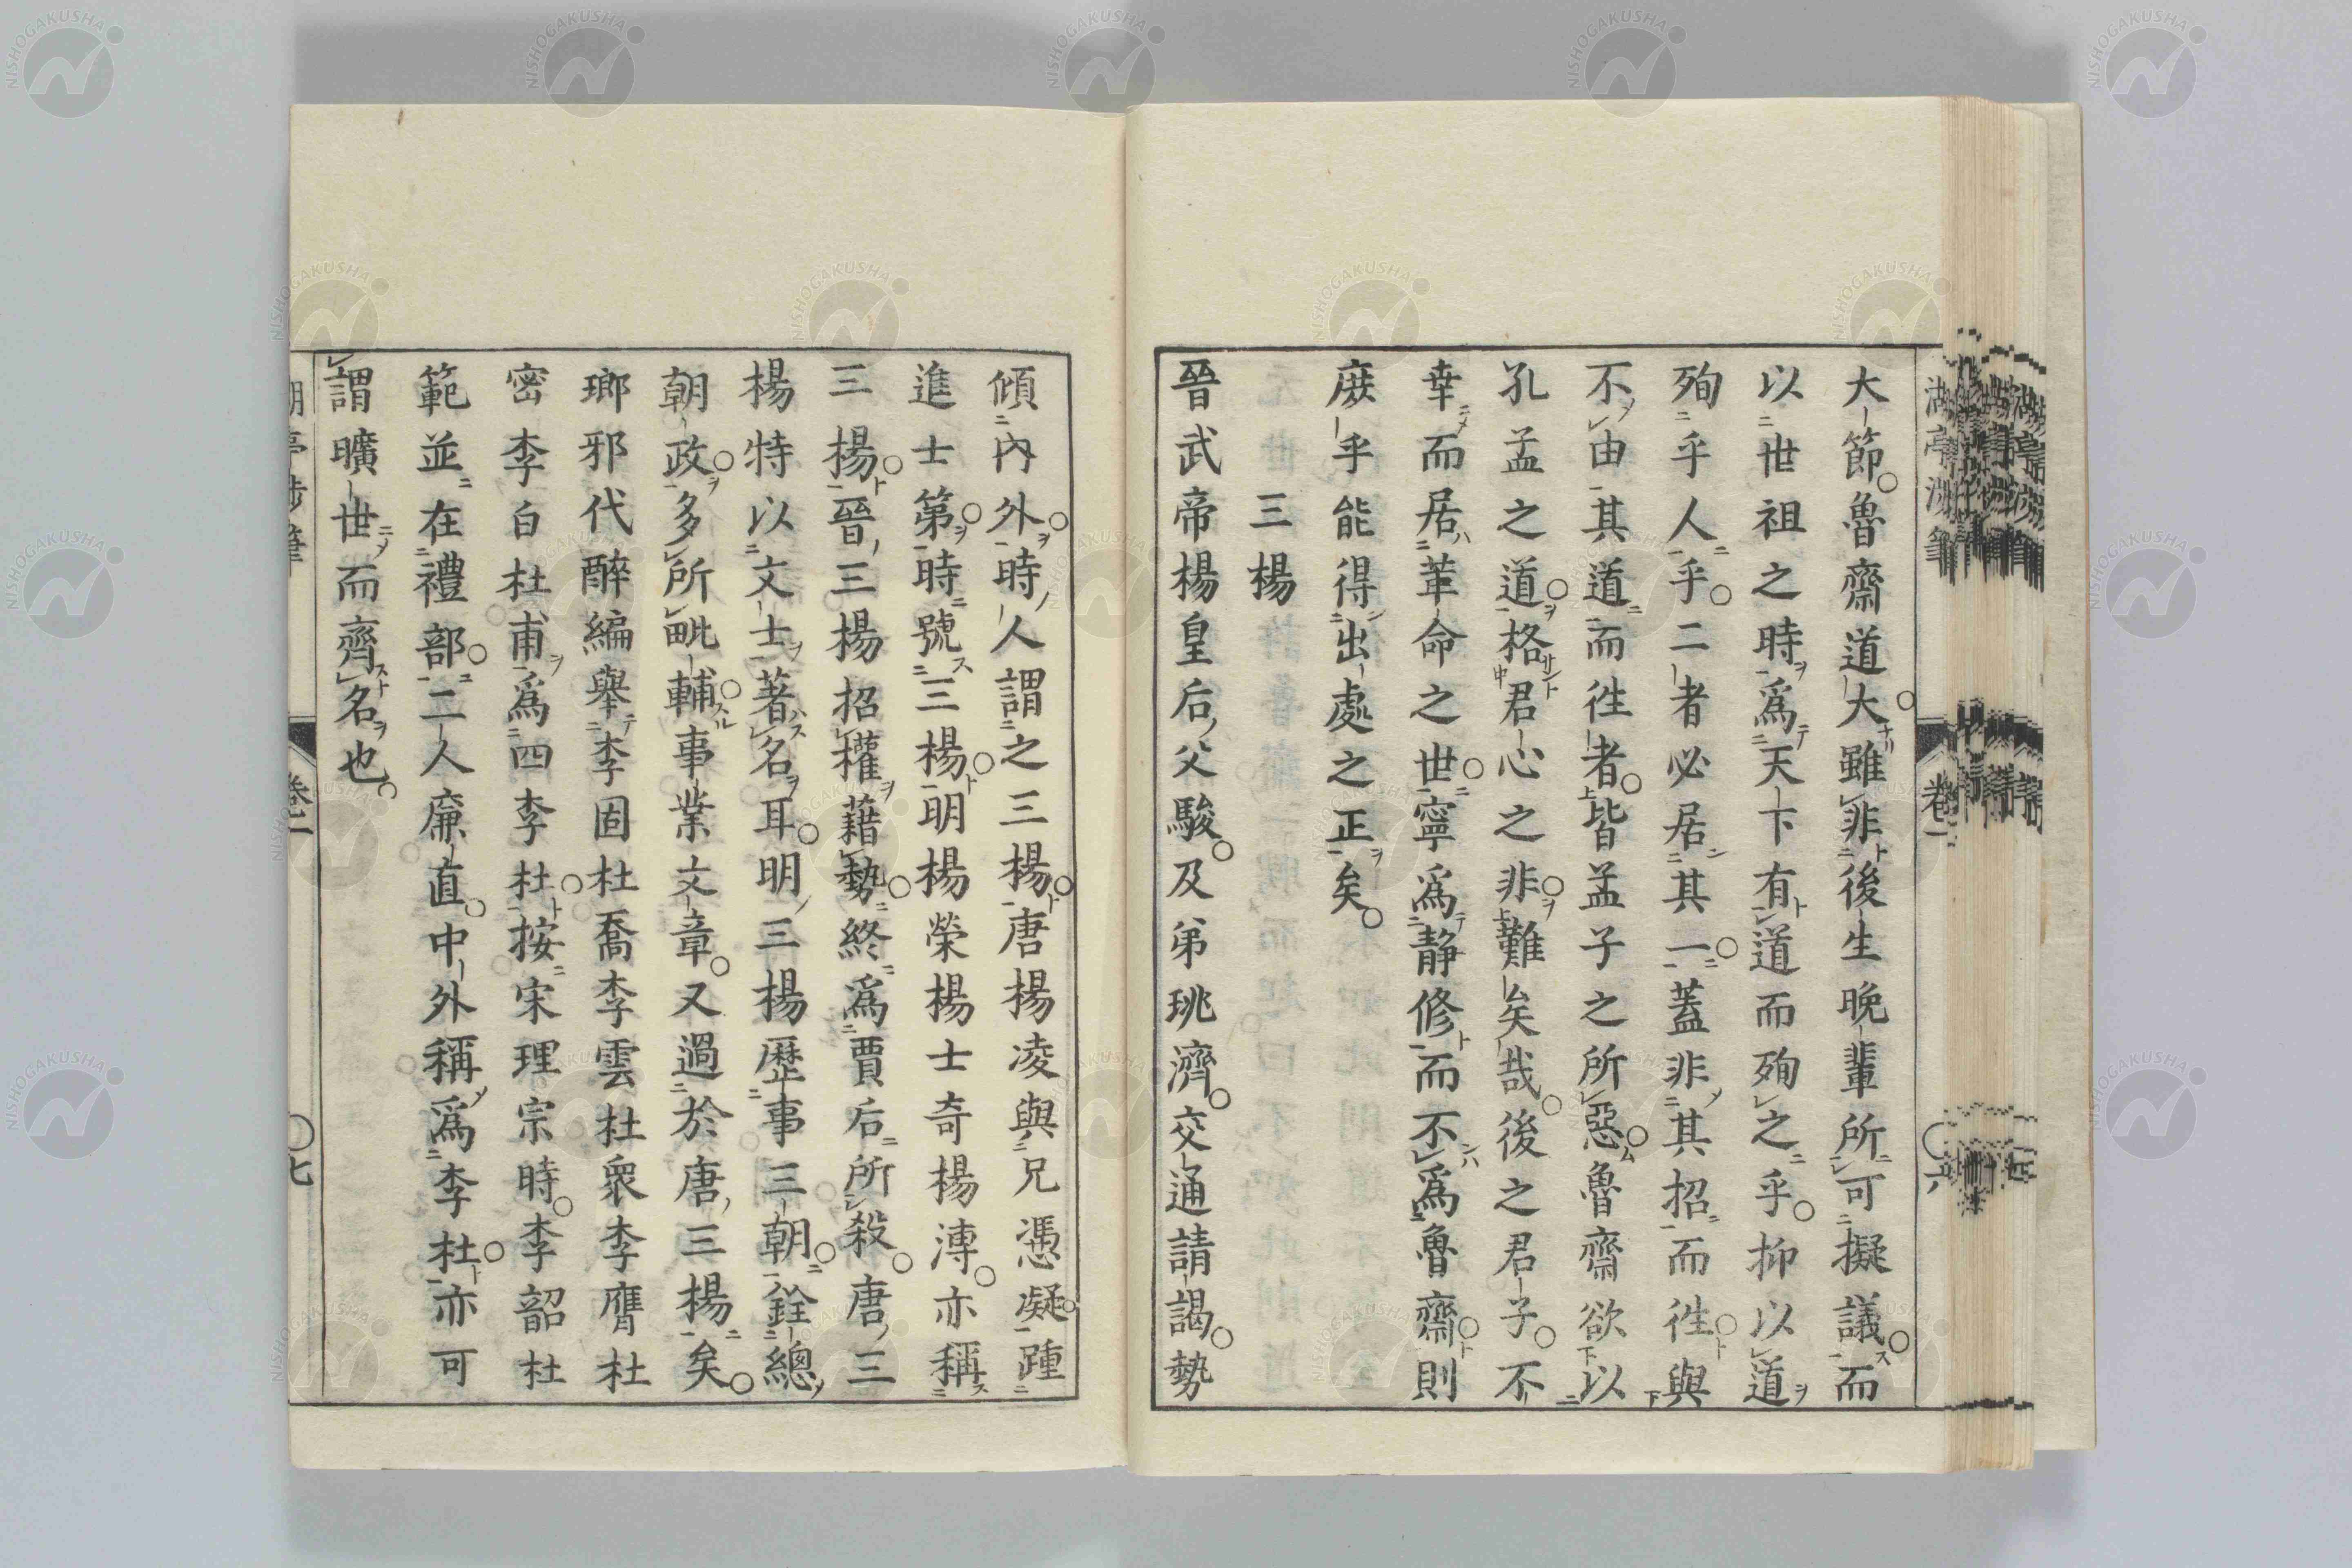 大節魯齋道大雖非後生晚輩所可擬議而
以世祖之時爲天下有道而殉之乎抑以道
殉乎人乎二者必居其一蓋非其招而徃與
不由其道而徃者皆孟子之所惡魯齋欲以
孔孟之道格君心之非難矣哉後之君子不
幸而居革命之世寧爲静修而不爲魯齋則
庶乎能得出處之正矣
三楊
晉武帝楊皇后父駿及弟珧濟交通請謁勢
傾內外時人謂之三楊唐楊凌與兄憑凝踵
進士第時號三楊明楊榮楊士奇楊溥亦稱
三楊晉三楊招權藉勢終爲賈后所殺唐三
楊特以文士著名耳明三楊歷事三朝銓總
朝政多所毗輔事業文章又過於唐三楊矣
瑯邪代醉編舉李固杜喬李雲杜衆李膺杜
密李白杜甫爲四李杜按宋理宗時李韶杜
範並在禮部二人廉直中外稱爲李杜亦可
謂曠世而齊名也
卷一
七
NISHOGAKUSHA